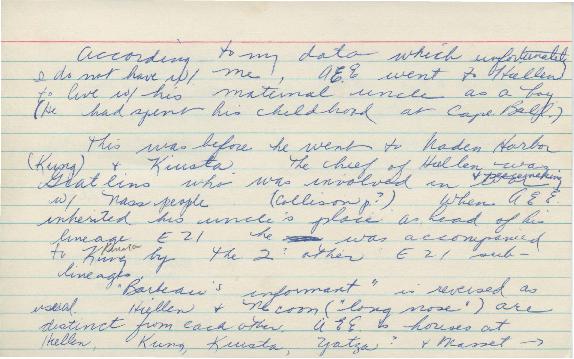 According to my data which unfortunately
I do not have w/ me, AEE went to Hiellen
to live w/ his maternal uncle as a boy
(He had spent his childhood at Cape Ball.)
This was before he went to Naden Harbor
(Kung) & Kiusta The chief of Hiellen was
Gaatlins who was involved in
w/ Nass people (Collison p?) When AEE
inherited his uncle's place as head of his
lineage E21 he was accompanied
to Kung by the 2 other E21 sub-
lineages.
"Barbeau's informant" is reversed as
usual. Hiellen & Necoon ("long nose") are
distinct from each other. AEE's houses at
Hellen, Kung, Kiusta, Yatza? & Masset →